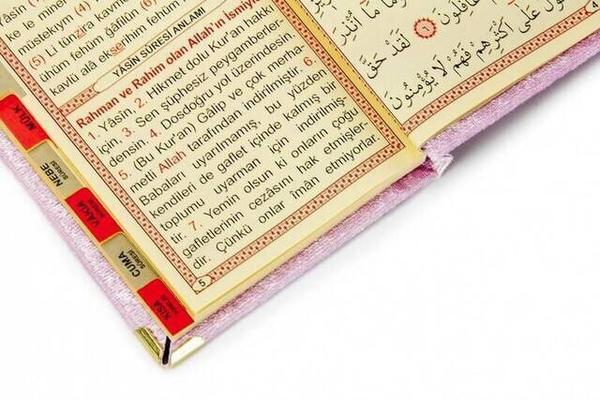 Yâsîn (2)
le minel
müstekıym (4)
(5) Li tünzira kavmen
ühüm fehüm ğâfilûn (6)
kavlü alâ ekserihim fehüm
YÂSÎN SÛRESİ ANLAMI
Rahman ve Rahim olan Allah'ın ismiyle
1. Yâsîn. 2. Hikmet dolu Kur'an hakkı
için, 3. Sen şüphesiz peygamberler-
densin. 4. Dosdoğru yol üzerindesin.
5. (Bu Kur'an) Gâlip ve çok merha-
metli Allah tarafından indirilmiştir. 6.
Babaları uyarılmamış, bu yüzden
kendileri de gaflet içinde kalmış bir
toplumu uyarman için indirilmiş-
tir. 7. Yemin olsun ki onların çoğu
gafletlerinin cezâsını hak etmişler-
dir. Çünkü onlar îmân etmiyorlar.
5
مَا أُنْذِرَ
غَافِلُونَ ٦ لَقَدْ حَقَّ
عَلَى أَكْثَرِهِمْ فَهُمْ لَا يُؤْمِنُونَ
4
MÜLK
NEBE
SÛRESİ
VAKIA
SÛRESİ
CUMA
SÛRESİ
KISA